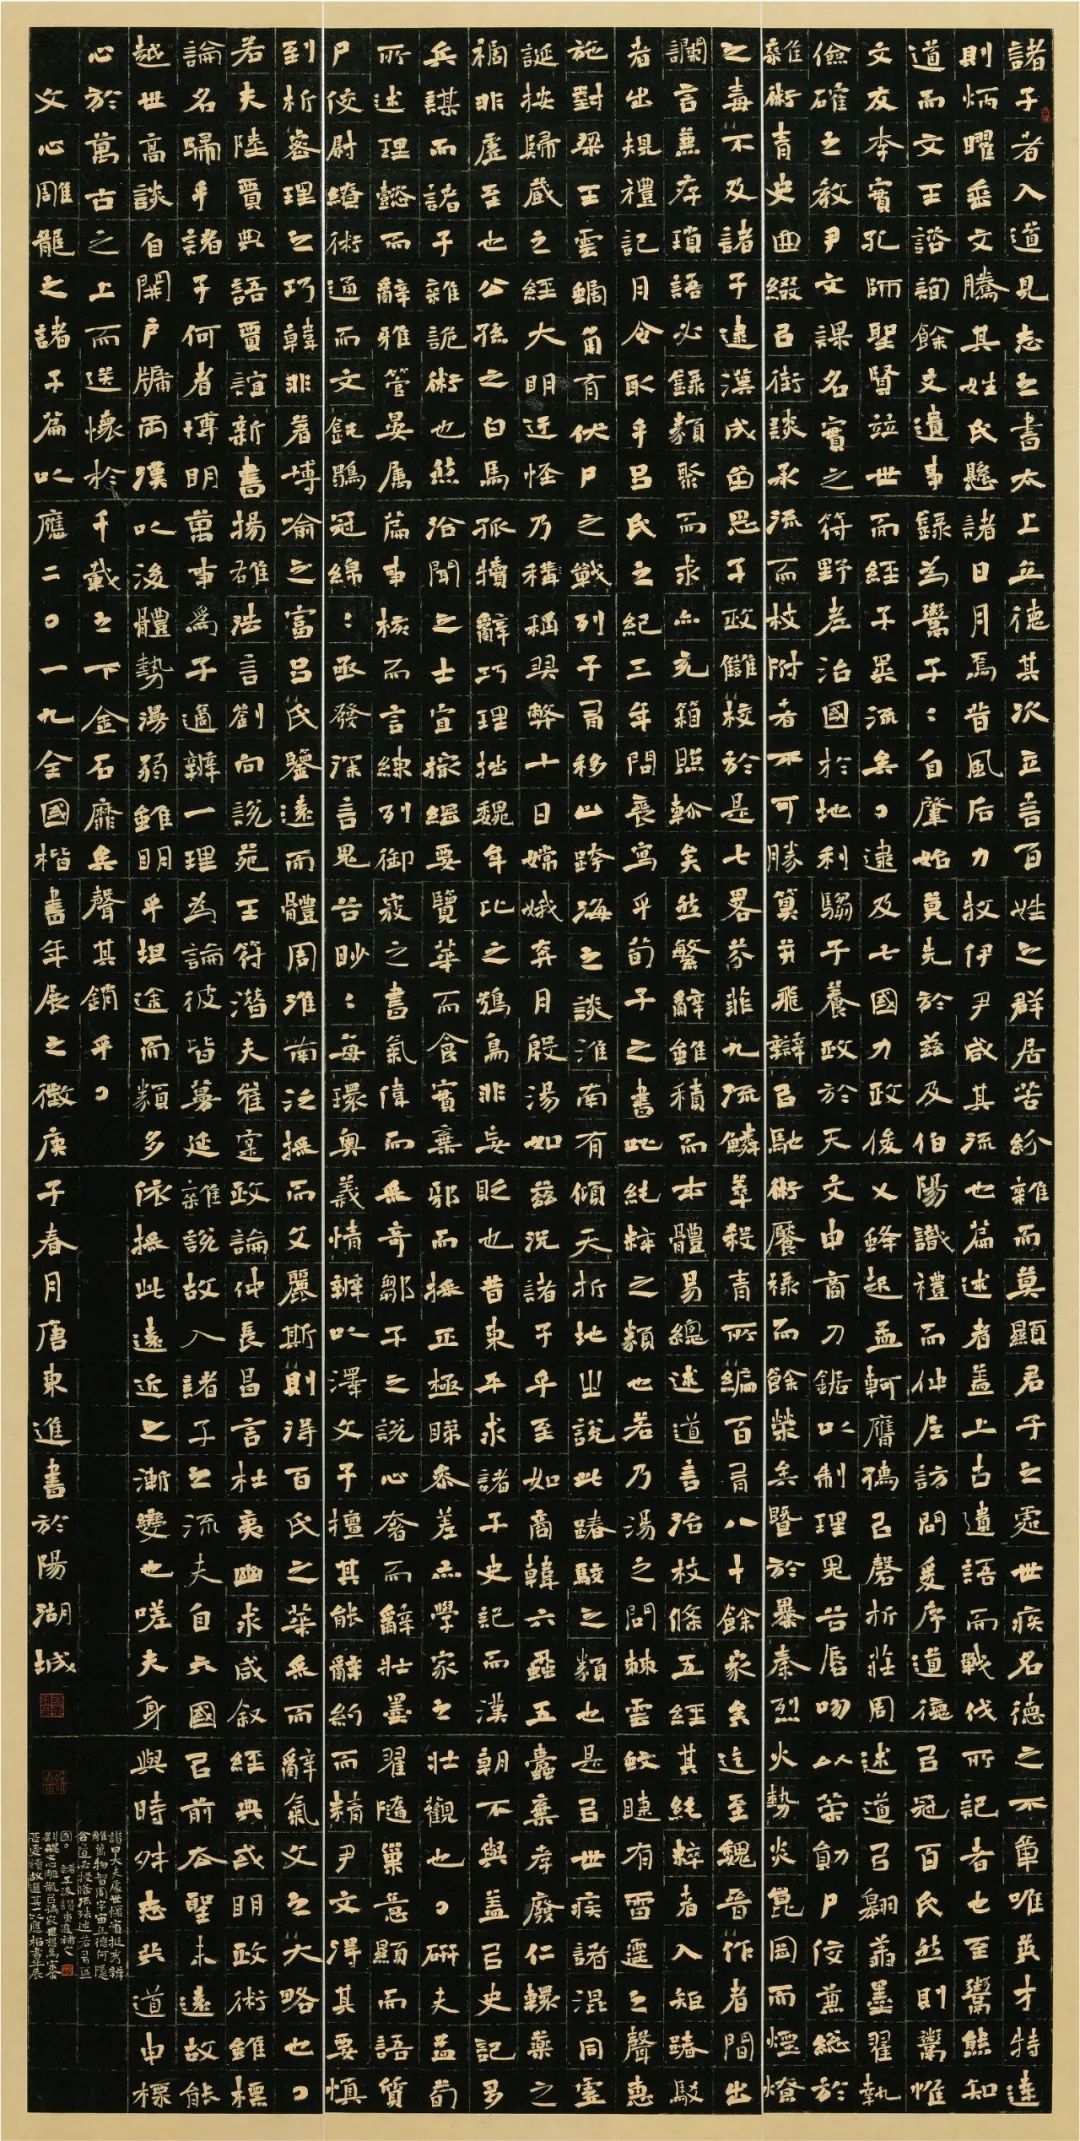 諸子者入道見志之書太上立德其次立言百姓之群居苦紛雜而莫顯君子之處世疾名德之不章唯英才特達
則炳曜垂文騰其姓氏懸諸日月焉昔風后力牧伊尹咸其流也篇述者蓋上古遺語而戰伐所記者也至鬻熊知
道而文王諮詢餘文遺事録為鬻子:自肇始莫先於茲及伯陽識禮而仲尼訪問爰序道德㠯冠百氏然則鬻惟
文友李實孔師聖賢並世而經子異流矣。逮及七國力政俊乂蜂起孟軻膺儒㠯磬折莊周述道㠯翱翔墨翟執
儉確之教尹文課名實之符野老治國於地利騶子養政於天文申商刀鋸以制理鬼谷唇吻以策勳尸佼兼總於
雜術青史曲綴㠯街談承流而枝附者不可勝算並飛辯㠯馳術饜祿而餘榮矣暨於暴秦烈火勢炎崑岡而煙燎
之毒不及諸子逮漢成留思子政讎校於是七畧芬菲九流鱗萃殺青所編百有八十餘家矣迄至魏晉作者間出
讕言兼存瑣語必錄類聚而求亦充箱照軫矣然繁辭雖積而本體易總述道言治枝條五經其純粹者入矩踳駁
者出規禮記月令取乎呂氏之紀三年問喪寫乎荀子之書此純粹之類也若乃湯之問棘雲蚊睫有雷霆之聲惠
施對梁王雲蝸角有伏尸之戰列子有移山跨海之談淮南有傾天折地之說此踳駁之類也是㠯世疾諸混同虛
誕按歸藏之經大明迂怪乃稱稱羿弊十日嫦娥奔月殷湯如茲況諸子乎至如商韓六蝨五蠹棄孝廢仁轘藥之
禍非虛至也公孫之白馬孤犢辭巧理拙魏牟比之鴞鳥非妄貶也昔東平求諸子史記而漢朝不與蓋㠯史記多
兵謀而諸子雜詭術也然洽聞之士宜撮綱要覽華而食實棄邪而採正極睇參差亦學家之壯觀也。研夫孟荀
所述理懿而辭雅管晏屬篇事核而言練列御寇之書氣偉而采奇鄒子之說心奢而辭壯墨翟隨巢意顯而語質
尸佼尉繚術通而文鈍鶡冠綿:亟發深言鬼谷眇:每環奧義情辨以澤文子擅其能辭約而精尹文得其要慎
到析密理之巧韓非著博喻之富呂氏鑒遠而體周淮南泛採而文麗斯則得百氏之華采而辭氣文之大略也。
若夫陸賈典語賈誼新書揚雄法言劉向說苑王符潛夫崔寔政論仲長昌言杜夷幽求咸敘經典或明政術雖標
論名歸乎諸子何者博明萬事爲子適辨一理為論彼皆蔓延雜說故入諸子之流夫自六國㠯前去聖未遠故能
越世高談自開戶牖兩漢以後體勢漫弱雖明乎坦途而類多依採此遠近之漸變也嗟夫身與時舛志共道申標
心於萬古之上而送懷於千載之下金石靡矣聲其銷乎。
文心雕龍之諸子篇以應二〇一九全國楷書年展之徵庚子春月唐東進書於陽湖城
讚曰丈夫處世懷寶挺秀辨
雕萬物智周宇宙立德何隱
含道必授條流殊述若有區
囿。